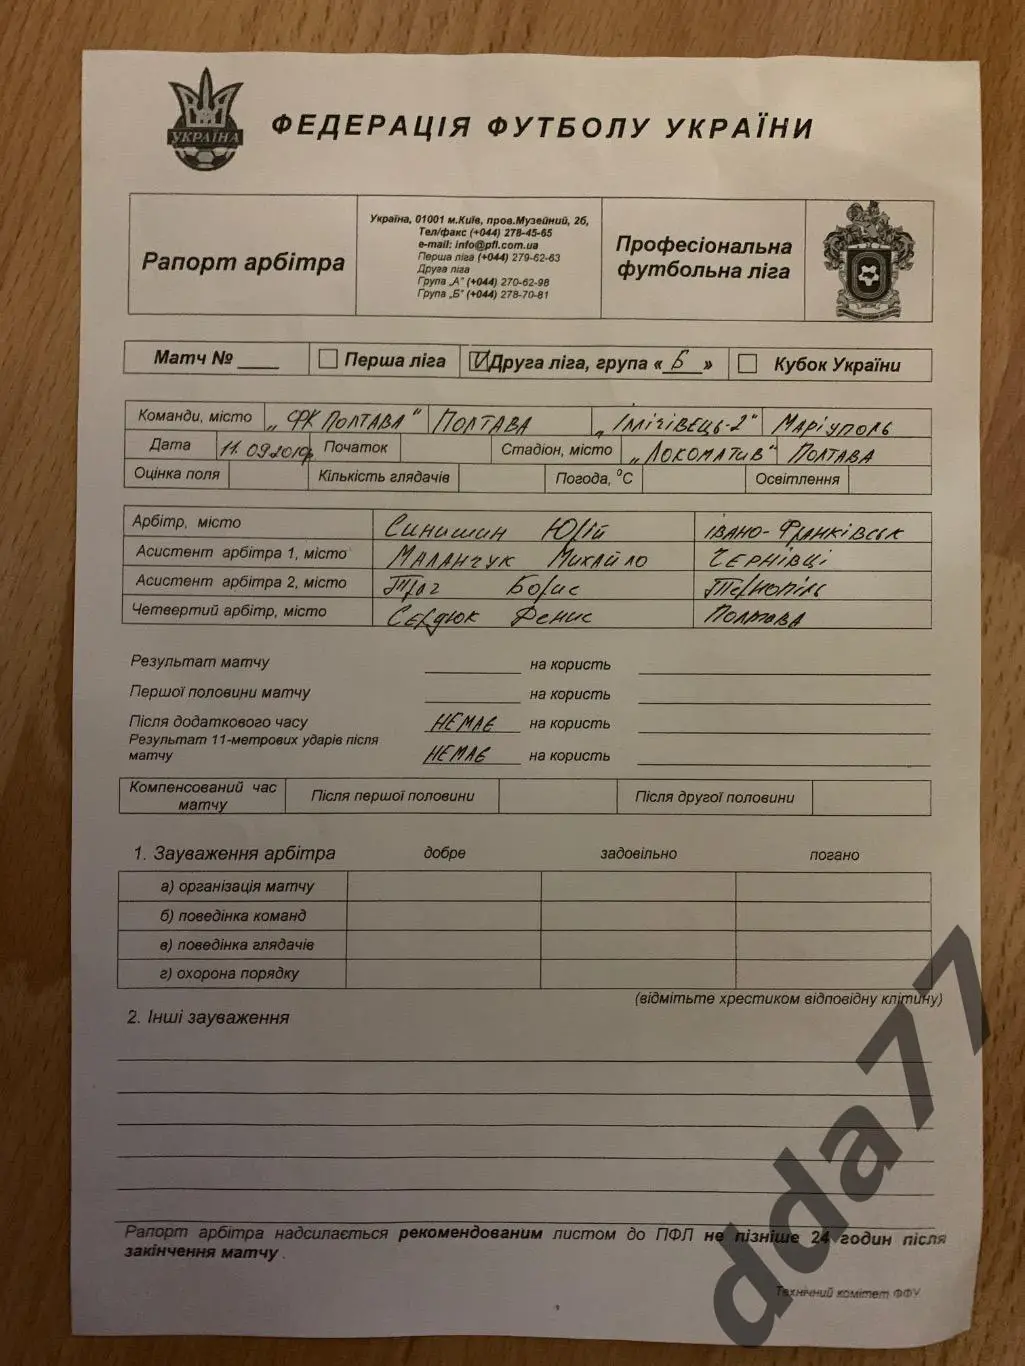 УКРАЇНА
ФЕДЕРАЦІЯ ФУТБОЛУ УКРАЇНИ
Рапорт арбітра
Україна, 01001 м.Київ, пров.Музейний, 2б,
Тел/факс (+044) 278-45-65
e-mail: info@pfl.com.ua
Перша ліга (+044) 279-62-63
Друга ліга
Група „А" (+044) 270-62-98
Група „Б" (+044) 278-70-81
Професіональна
футбольна ліга
Матч № ____ Перша ліга V Друга ліга, група « Б » Кубок України
Команди, місто „ФК ПОЛТАВА" ПОЛТАВА „ІЛЛІЧІВЕЦЬ-2" МАРІУПОЛЬ
Дата 11.09.2010р Початок Стадіон, місто „ЛОКОМАТИВ" ПОЛТАВА
Оцінка поля Кількість глядачів Погода, °С Освітлення
Арбітр, місто Синишин Юрій ІВАНО-ФРАНКІВСЬК
Асистент арбітра 1, місто МАЛАНЧУК МИХАЙЛО ЧЕРНІВЦІ
Асистент арбітра 2, місто Трач Борис Тернопіль
Четвертий арбітр, місто Сердюк Денис Полтава
Результат матчу на користь
Першої половини матчу на користь
Після додаткового часу НЕМАЄ на користь
Результат 11-метрових ударів після
матчу НЕМАЄ на користь
Компенсований час
матчу Після першої половини Після другої половини
1. Зауваження арбітра добре задовільно погано
а) організація матчу
б) поведінка команд
в) поведінка глядачів
г) охорона порядку
(відмітьте хрестиком відповідну клітину)
2. Інші зауваження
Рапорт арбітра надсилається рекомендованим листом до ПФЛ не пізніше 24 годин після
закінчення матчу.
Технічний комітет ФФУ
dda77